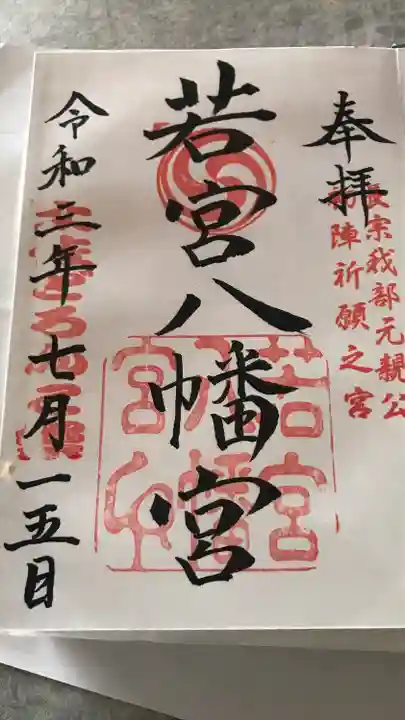 奉拝
長宗我部元親公
初陣祈願之宮
若宮八幡宮
若宮
八幡
宮
令和三年七月一五日